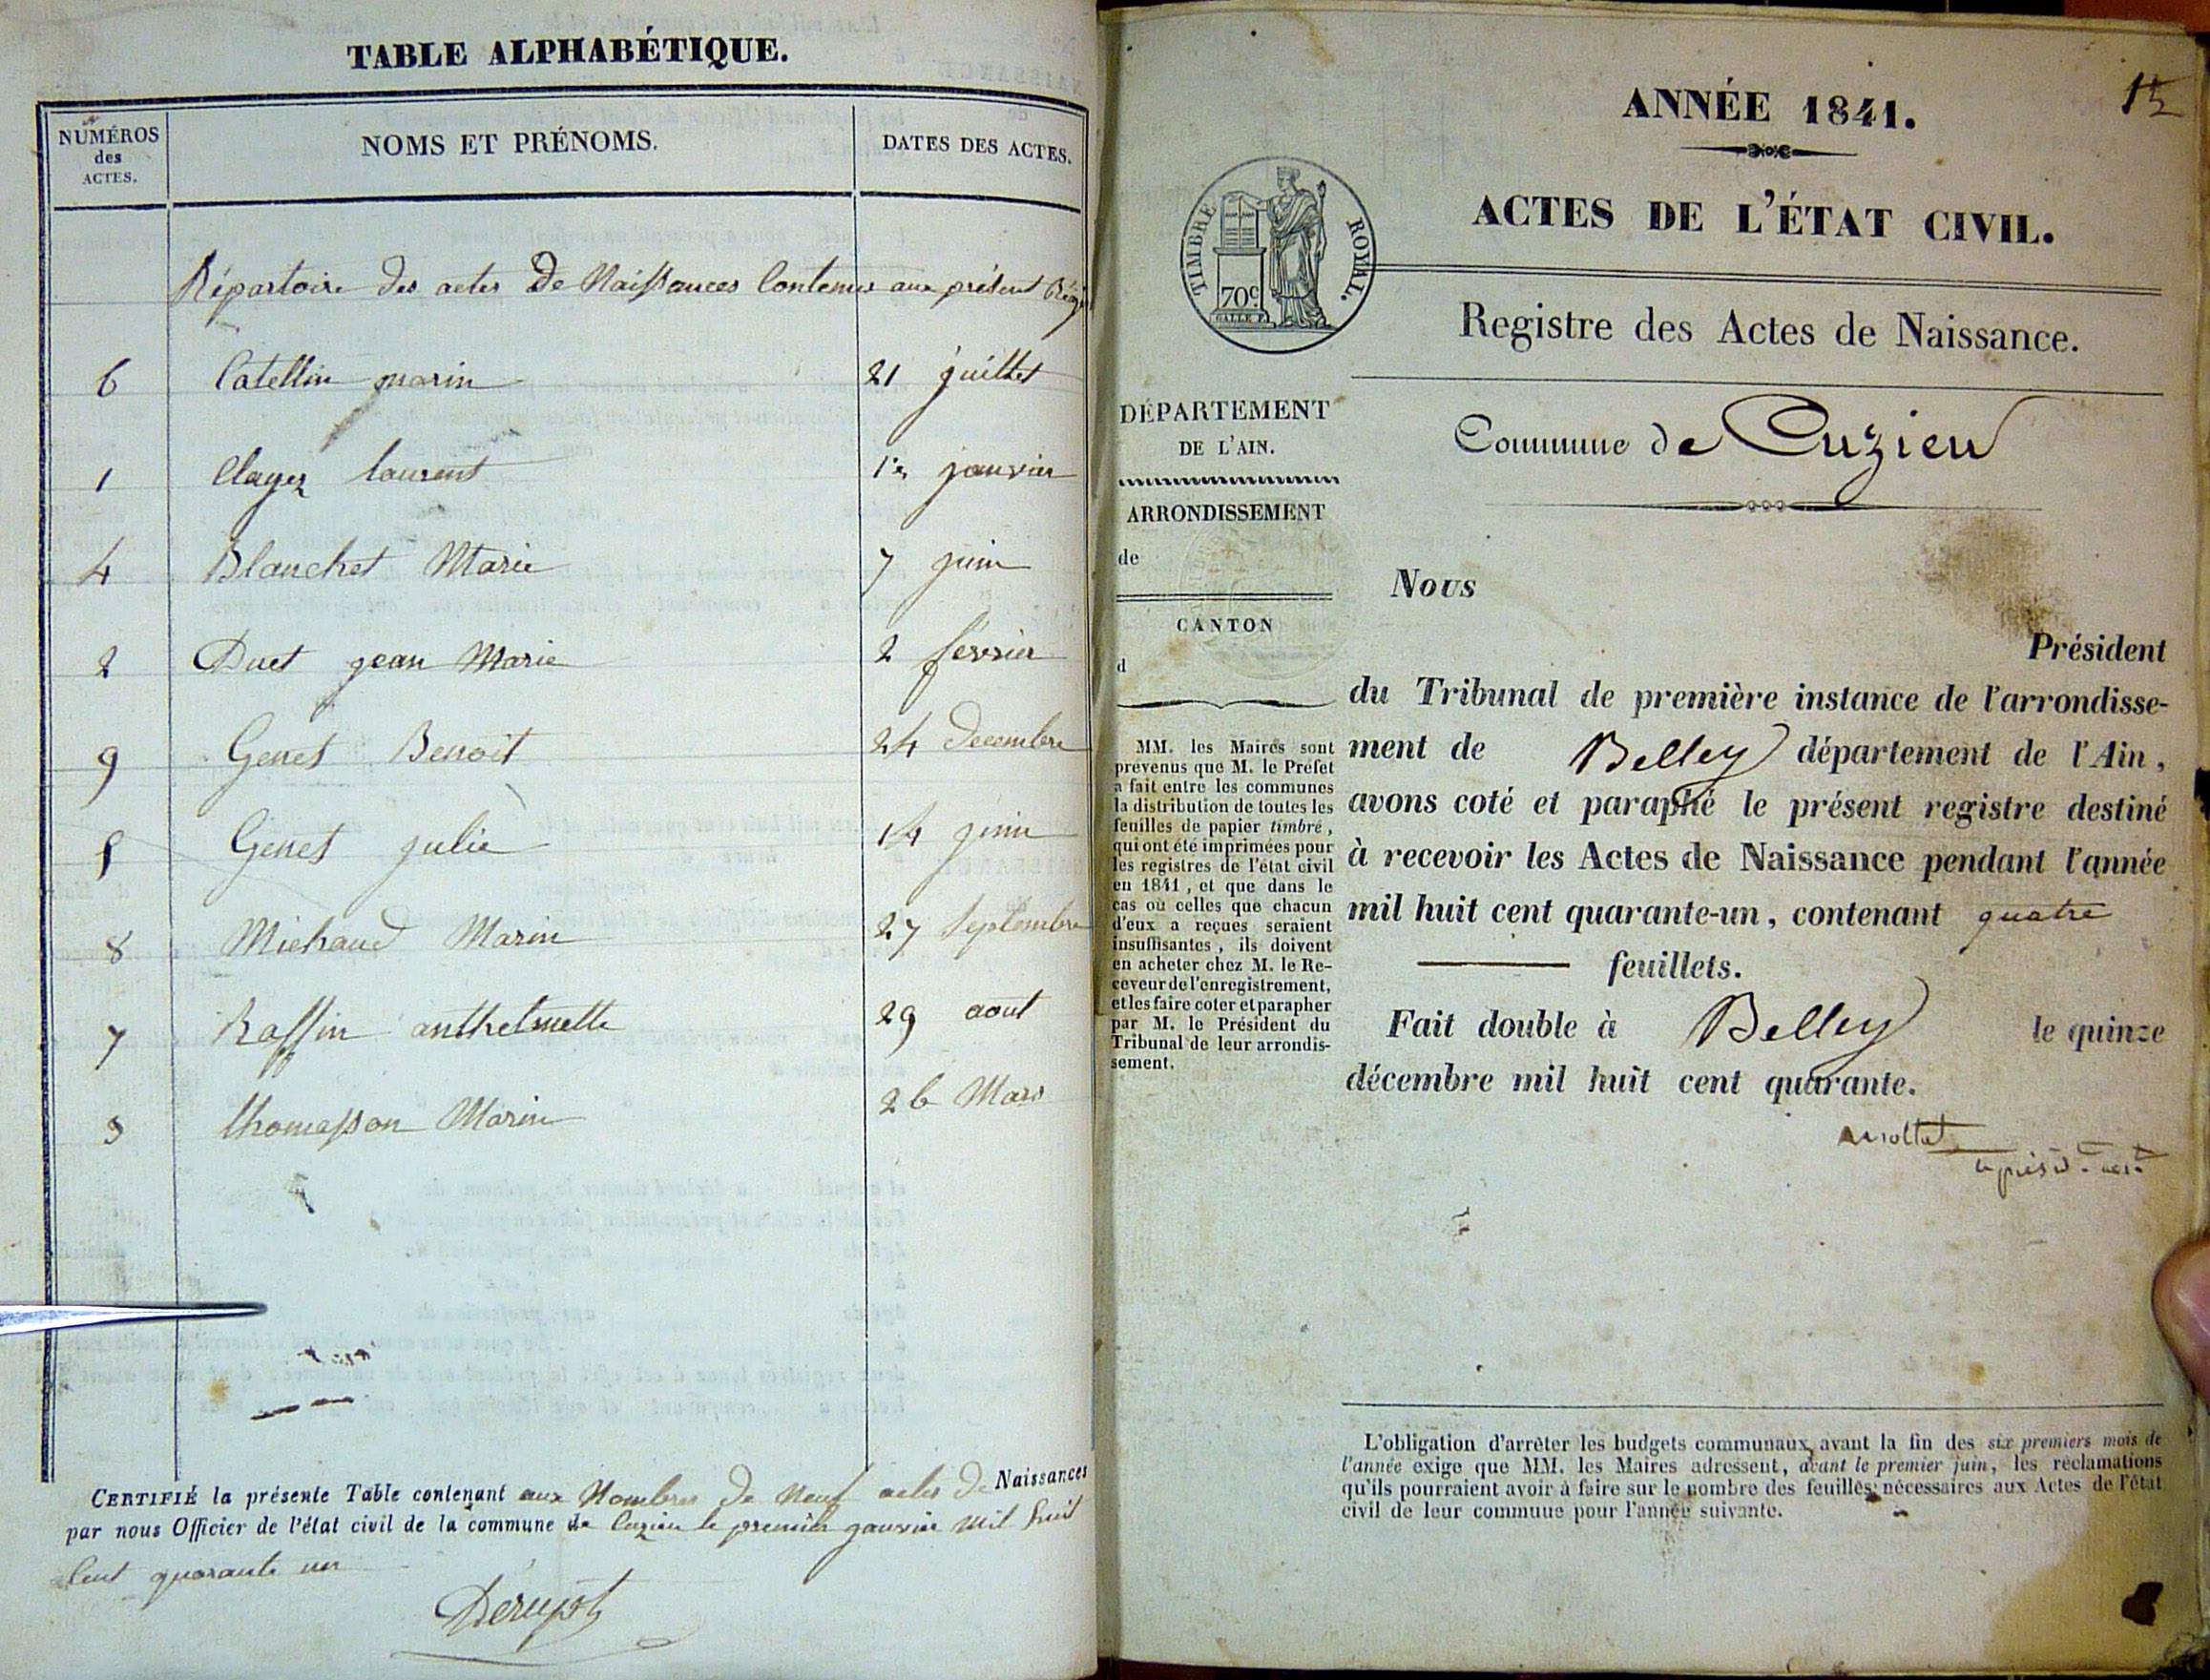 TABLE ALPHABÉTIQUE.
NUMÉROS des ACTES.
NOMS ET PRÉNOMS.
DATES DES ACTES.
Répertoire des actes De Naissances Contenus aux présent
6 Catellin marin 21 juillet
1 Clayez laurent 1er janvier
4 Blanchet Marie 7 juin
2 Duet jean Marie 2 février
9 Genet Benoit 24 Decembre
5 Genet julie 14 juin
8 Michaud Marin 27 Septembre
7 Raffin anthelmette 29 aout
3 thomasson Marin 26 Mars
CERTIFIÉ la présente Table contenant aux Nombres De Neuf actes De Naissances
par nous Officier de l'état civil de la commune de Cuzieu le premier janvier mil huit
Cent quarante un
15
ANNÉE 1841.
ACTES DE L'ÉTAT CIVIL.
TIMBRE ROYAL.
70c
GALLE F.
Registre des Actes de Naissance.
DÉPARTEMENT
DE L'AIN.
ARRONDISSEMENT
de
CANTON
d
MM. les Maires sont
prévenus que M. le Préfet
a fait entre les communes
la distribution de toutes les
feuilles de papier timbré,
qui ont été imprimées pour
les registres de l'état civil
en 1841, et que dans le
cas où celles que chacun
d'eux a reçues seraient
insuffisantes, ils doivent
en acheter chez M. le Re-
ceveur de l'enregistrement,
et les faire coter et parapher
par M. le Président du
Tribunal de leur arrondis-
sement.
Commune de Cuzieu
Nous
Président
du Tribunal de première instance de l'arrondisse-
ment de Belley département de l'Ain,
avons coté et paraphé le présent registre destiné
à recevoir les Actes de Naissance pendant l'année
mil huit cent quarante-un, contenant quatre
feuillets.
Fait double à Belley le quinze
décembre mil huit cent quarante.
L'obligation d'arrêter les budgets communaux avant la fin des six premiers mois de
l'année exige que MM. les Maires adressent, avant le premier juin, les réclamations
qu'ils pourraient avoir à faire sur le nombre des feuilles nécessaires aux Actes de l'état
civil de leur commune pour l'année suivante.